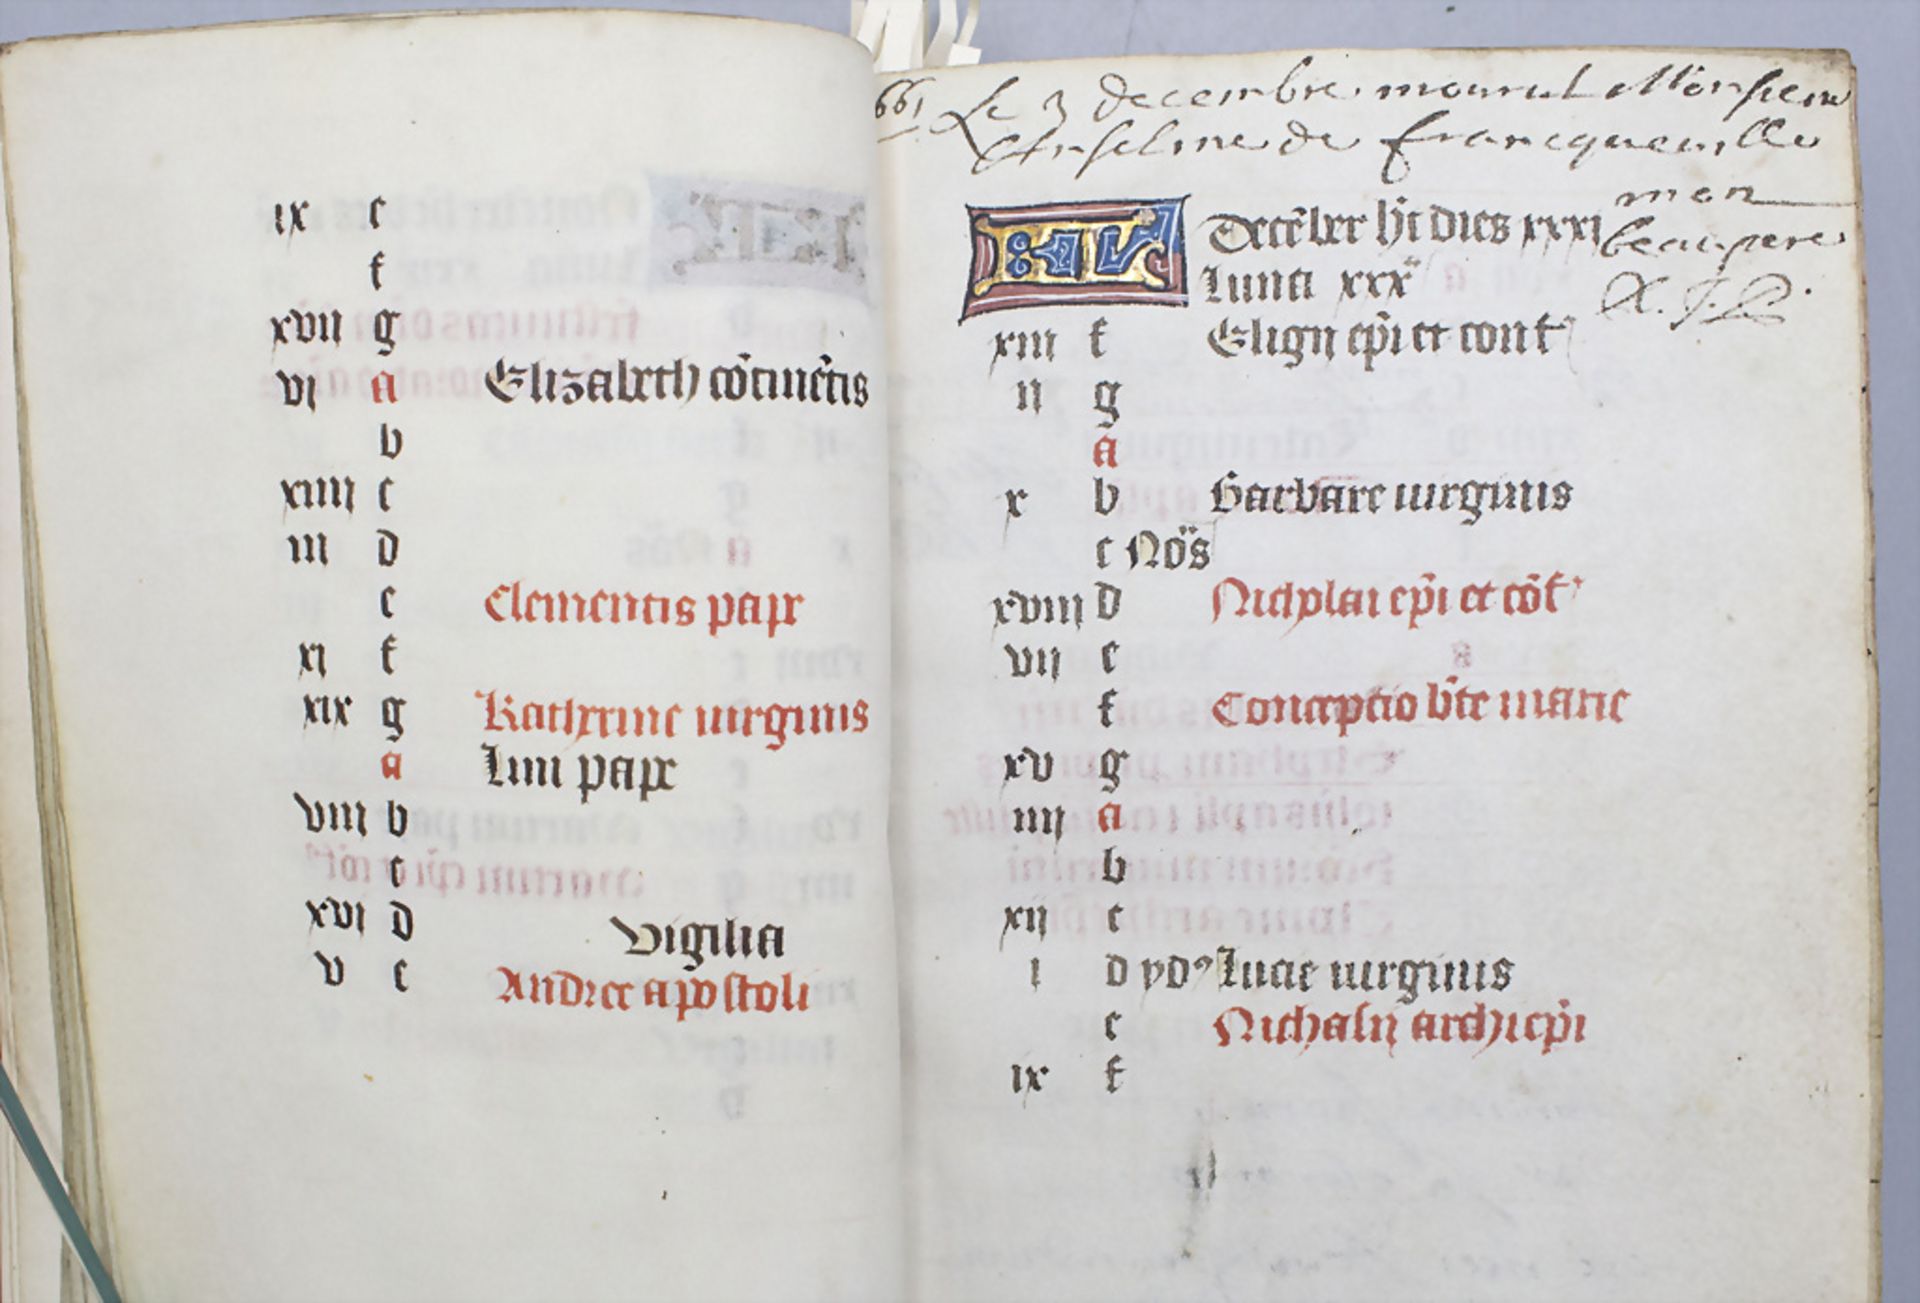 ix c
f
xvii g
vi a Elizabeth cōtinētis
b
xiiii c
iii d
e Clementis pape
xi f
xix g Katherine uirginis
a Lini pape
viii b
c
xvi d Vigilia
v e Andree apostoli
661 Le 3 decembre mourut Monsieur
Anselme de francqueuille
mon
beaupere
KL Decēber hēt dies xxxi
Luna xxx
xiii f Eligii ep̄i et conf
ii g
a
x b Barbare uirginis
c Nōs
xviii d Nicholai ep̄i et cōf
vii e
f Conceptio bt̄e marie
xv g
iiii a
b
xii c
i d yd9 Lucie uirginis
e Nichasii archiep̄i
ix f